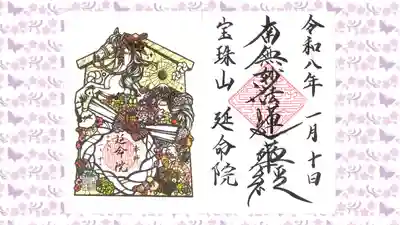 令和八年 一月十日
南無妙法蓮華経
宝珠山 延命院
延命院